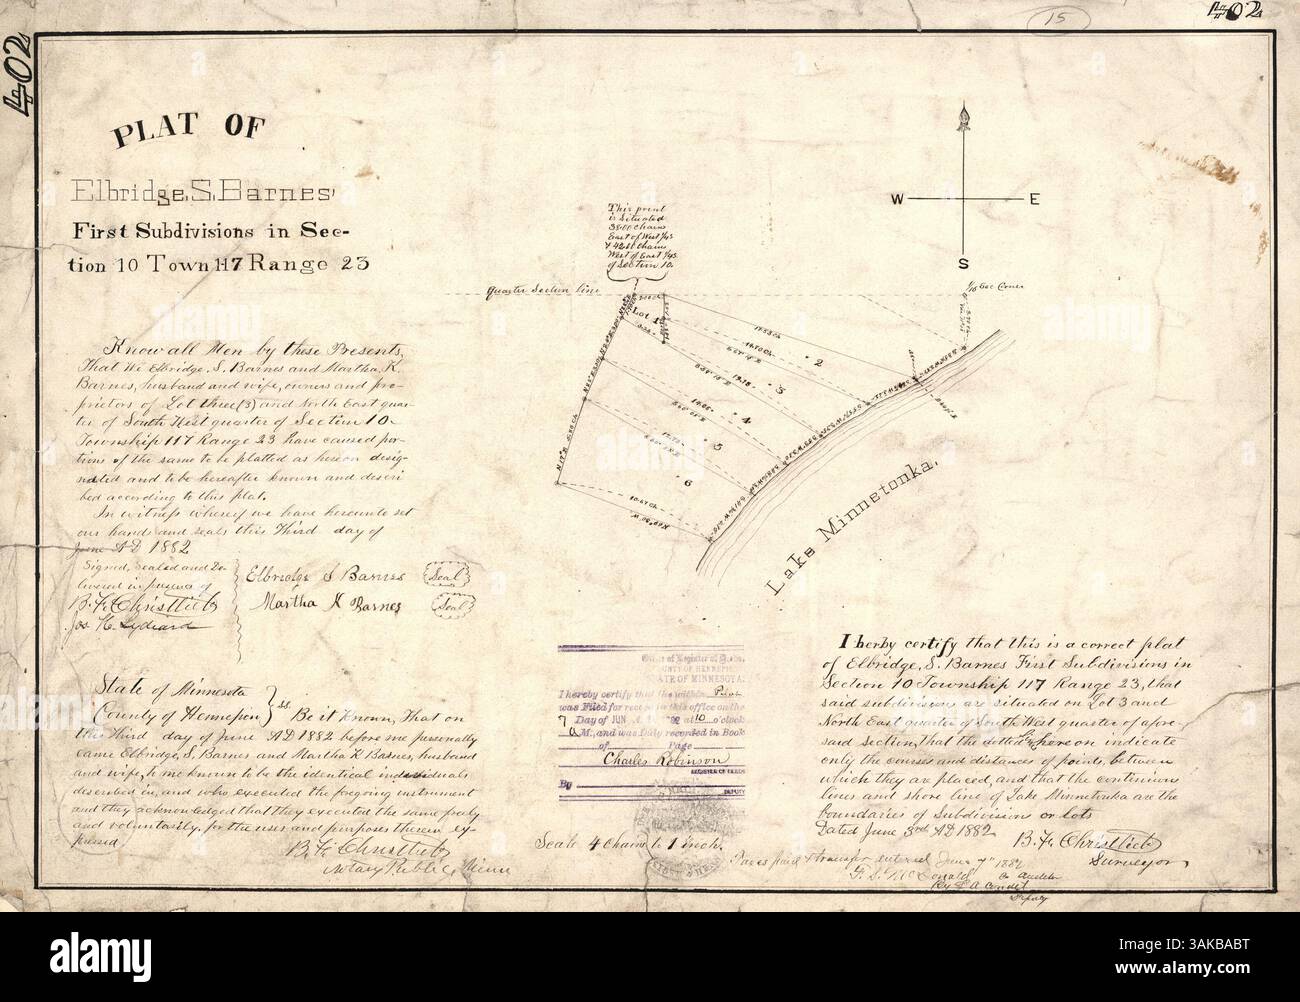 15
402
402
PLAT OF
Elbridge. S. Barnes'
First Subdivisions in Sec-
tion 10 Town 117 Range 23
This point
is situated
38.00 Chains
East of West 1/4 S
West of East 1/4 S.
of Section 10.
W E
S
Quarter Section line
1/16 Sec Corner
Lot 1
2
3
4
5
6
Lake Minnetonka.
Know all Men by these Presents,
That We Elbridge, S. Barnes and Martha, K.
Barnes, husband and wife, owners and pro-
prietors of Lot three (3) and North East quar-
ter of South West quarter of Section 10.
Township 117 Range 23 have caused por-
tions of the same to be platted as hereon desig-
nated and to be hereafter known and descri
bed according to this plat.
In witness whereof we have hereunto set
our hands and seals this Third day of
June AD 1882
Signed, sealed and De
livered in presence of
B. F. Christlieb
Jos. H. Lydiard
Elbridge S Barnes Seal
Martha K Barnes Seal
State of Minnesota
County of Hennepin ss.
Be it Known, That on
this Third day of June AD 1882 before me personally
came Elbridge, S, Barnes and Martha K Barnes, husband
and wife, to me known to be the identical individuals
described in, and who executed the foregoing instrument
and they acknowledged that they executed the same freely
and voluntarily, for the uses and purposes therein ex-
pressed
B. F. Christlieb
Notary Public, Minn
Office of Register of Deeds,
COUNTY OF HENNEPIN
STATE OF MINNESOTA:
I hereby certify that the within Plat
was Filed for record in this office on the
7 Day of JUN A. D. 1882 at 10 o'clock
A M., and was Duly recorded in Book
of Page
Charles Robinson
REGISTER OF DEEDS
By
DEPUTY
Scale 4 Chains to 1 inch.
I herby certify that this is a correct plat
of Elbridge, S. Barnes First Subdivisions in
Section 10 Township 117 Range 23, that
said subdivision are situated on Lot 3 and
North East quarter of South West quarter of afore-
said Section, that the dotted lines hereon indicate
only the courses and distances of points, between
which they are placed, and that the continuous
lines and shore line of Lake Minnetonka are the
boundaries of Subdivisions or lots
Dated June 3rd AD 1882
B. F. Christlieb
Surveyor
Taxes paid & transfer entered June 7th 1882
Co Auditor
Deputy
alamy
Image ID: 3AKBABT
www.alamy.com